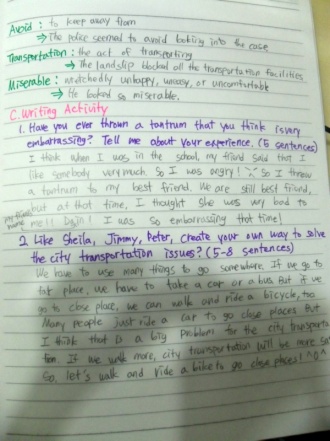 Avoid : to keep away from
⇒ The police seemed to avoid looking into the case
Transportation : the act of transporting
⇒ The landslip blocked all the transportation facilities
Miserable : wretchedly unhappy, uneasy, or uncomfortable
⇒ He looked so miserable.
C. Writing Activity
1. Have you ever thrown a tantrum that you think is very
embarrassing? Tell me about your experience. (5 sentences)
I think when I was in the school, my friend said that I
like somebody very much. So I was angry! So I threw
a tantrum to my best friend. We are still best friend,
but at that time, I thought she was very bad to
me!! I was so embarrassing that time!
2. Like Sheila, Jimmy, Peter, create your own way to solve
the city transportation issues? (5-8 sentences)
We have to use many things to go somewhere. If we go to
far place, we have to take a car or a bus. But if we
go to close place, we can walk and ride a bicycle, too.
Many people just ride a car to go close places. But
I think that is a big problem for the city transporta-
tion. If we walk more, city transportation will be more
So, let's walk and ride a bike to go close places! ^o^